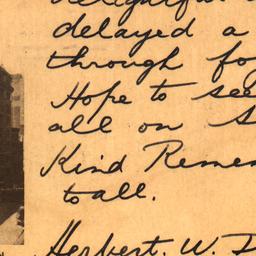 delayed a
through
Hope to see
all on
Kind
to all.
Herbert. W.